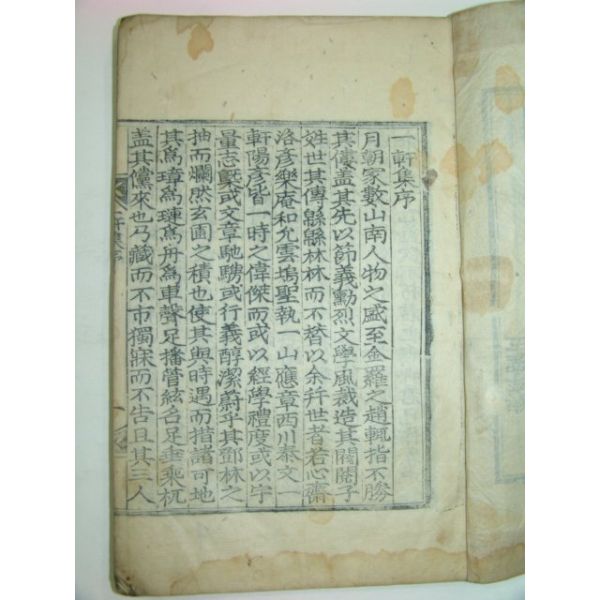 一軒集序
月朝家數山南人物之盛至金羅之趙輒指不勝
其僂盖其先以節義勳烈文學風裁造其閥閱子
姓世其傳緜緜林林而不替以余幷世者若心齋
洛彦樂庵和允雲塢聖執一山應章西川泰文一
軒陽彦皆一時之偉傑而或以經學禮度或以字
量志槩或文章馳騁或行義醇潔蔚乎其鄧林之
抽而爛然玄圃之積也使其與時遇而措諸可地
其爲璋爲璉爲舟爲車聲足播管絃名足垂乘杌
盖其儻來也乃藏而不市獨寐而不告且其三人
一軒集序